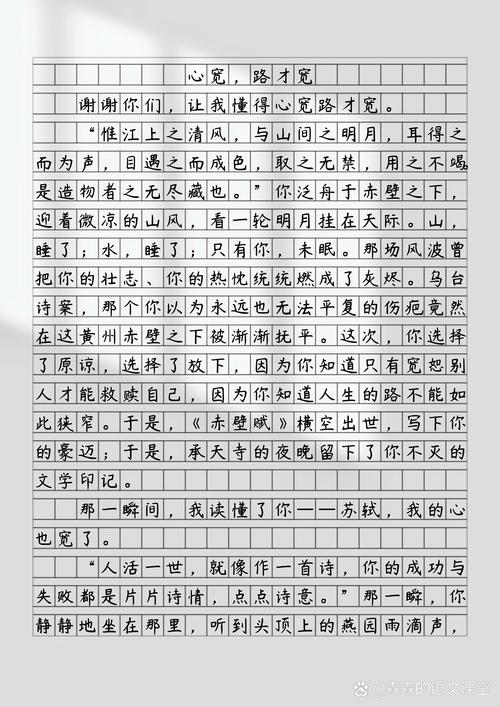 心宽，路才宽
谢谢你们，让我懂得心宽路才宽。
“惟江上之清风，与山间之明月，耳得之
而为声，目遇之而成色，取之无禁，用之不竭，
是造物者之无尽藏也。”你泛舟于赤壁之下，
迎着微凉的山风，看一轮明月挂在天际。山，
睡了；水，睡了；只有你，未眠。那场风波曾
把你的壮志、你的热忱统统燃成了灰烬。乌台
诗案，那个你以为永远也无法平复的伤疤竟然
在这黄州赤壁之下被渐渐抚平。这次，你选择
了原谅，选择了放下，因为你知道只有宽恕别
人才能救赎自己，因为你知道人生的路不能如
此狭窄。于是，《赤壁赋》横空出世，写下你
的豪迈；于是，承天寺的夜晚留下了你不灭的
文学印记。
那一瞬间，我读懂了你——苏轼，我的心
也宽了。
“人活一世，就像作一首诗，你的成功与
失败都是片片诗情，点点诗意。”那一瞬，你
静静地坐在那里，听到头顶上的燕园雨滴声，
@森森的语文课堂